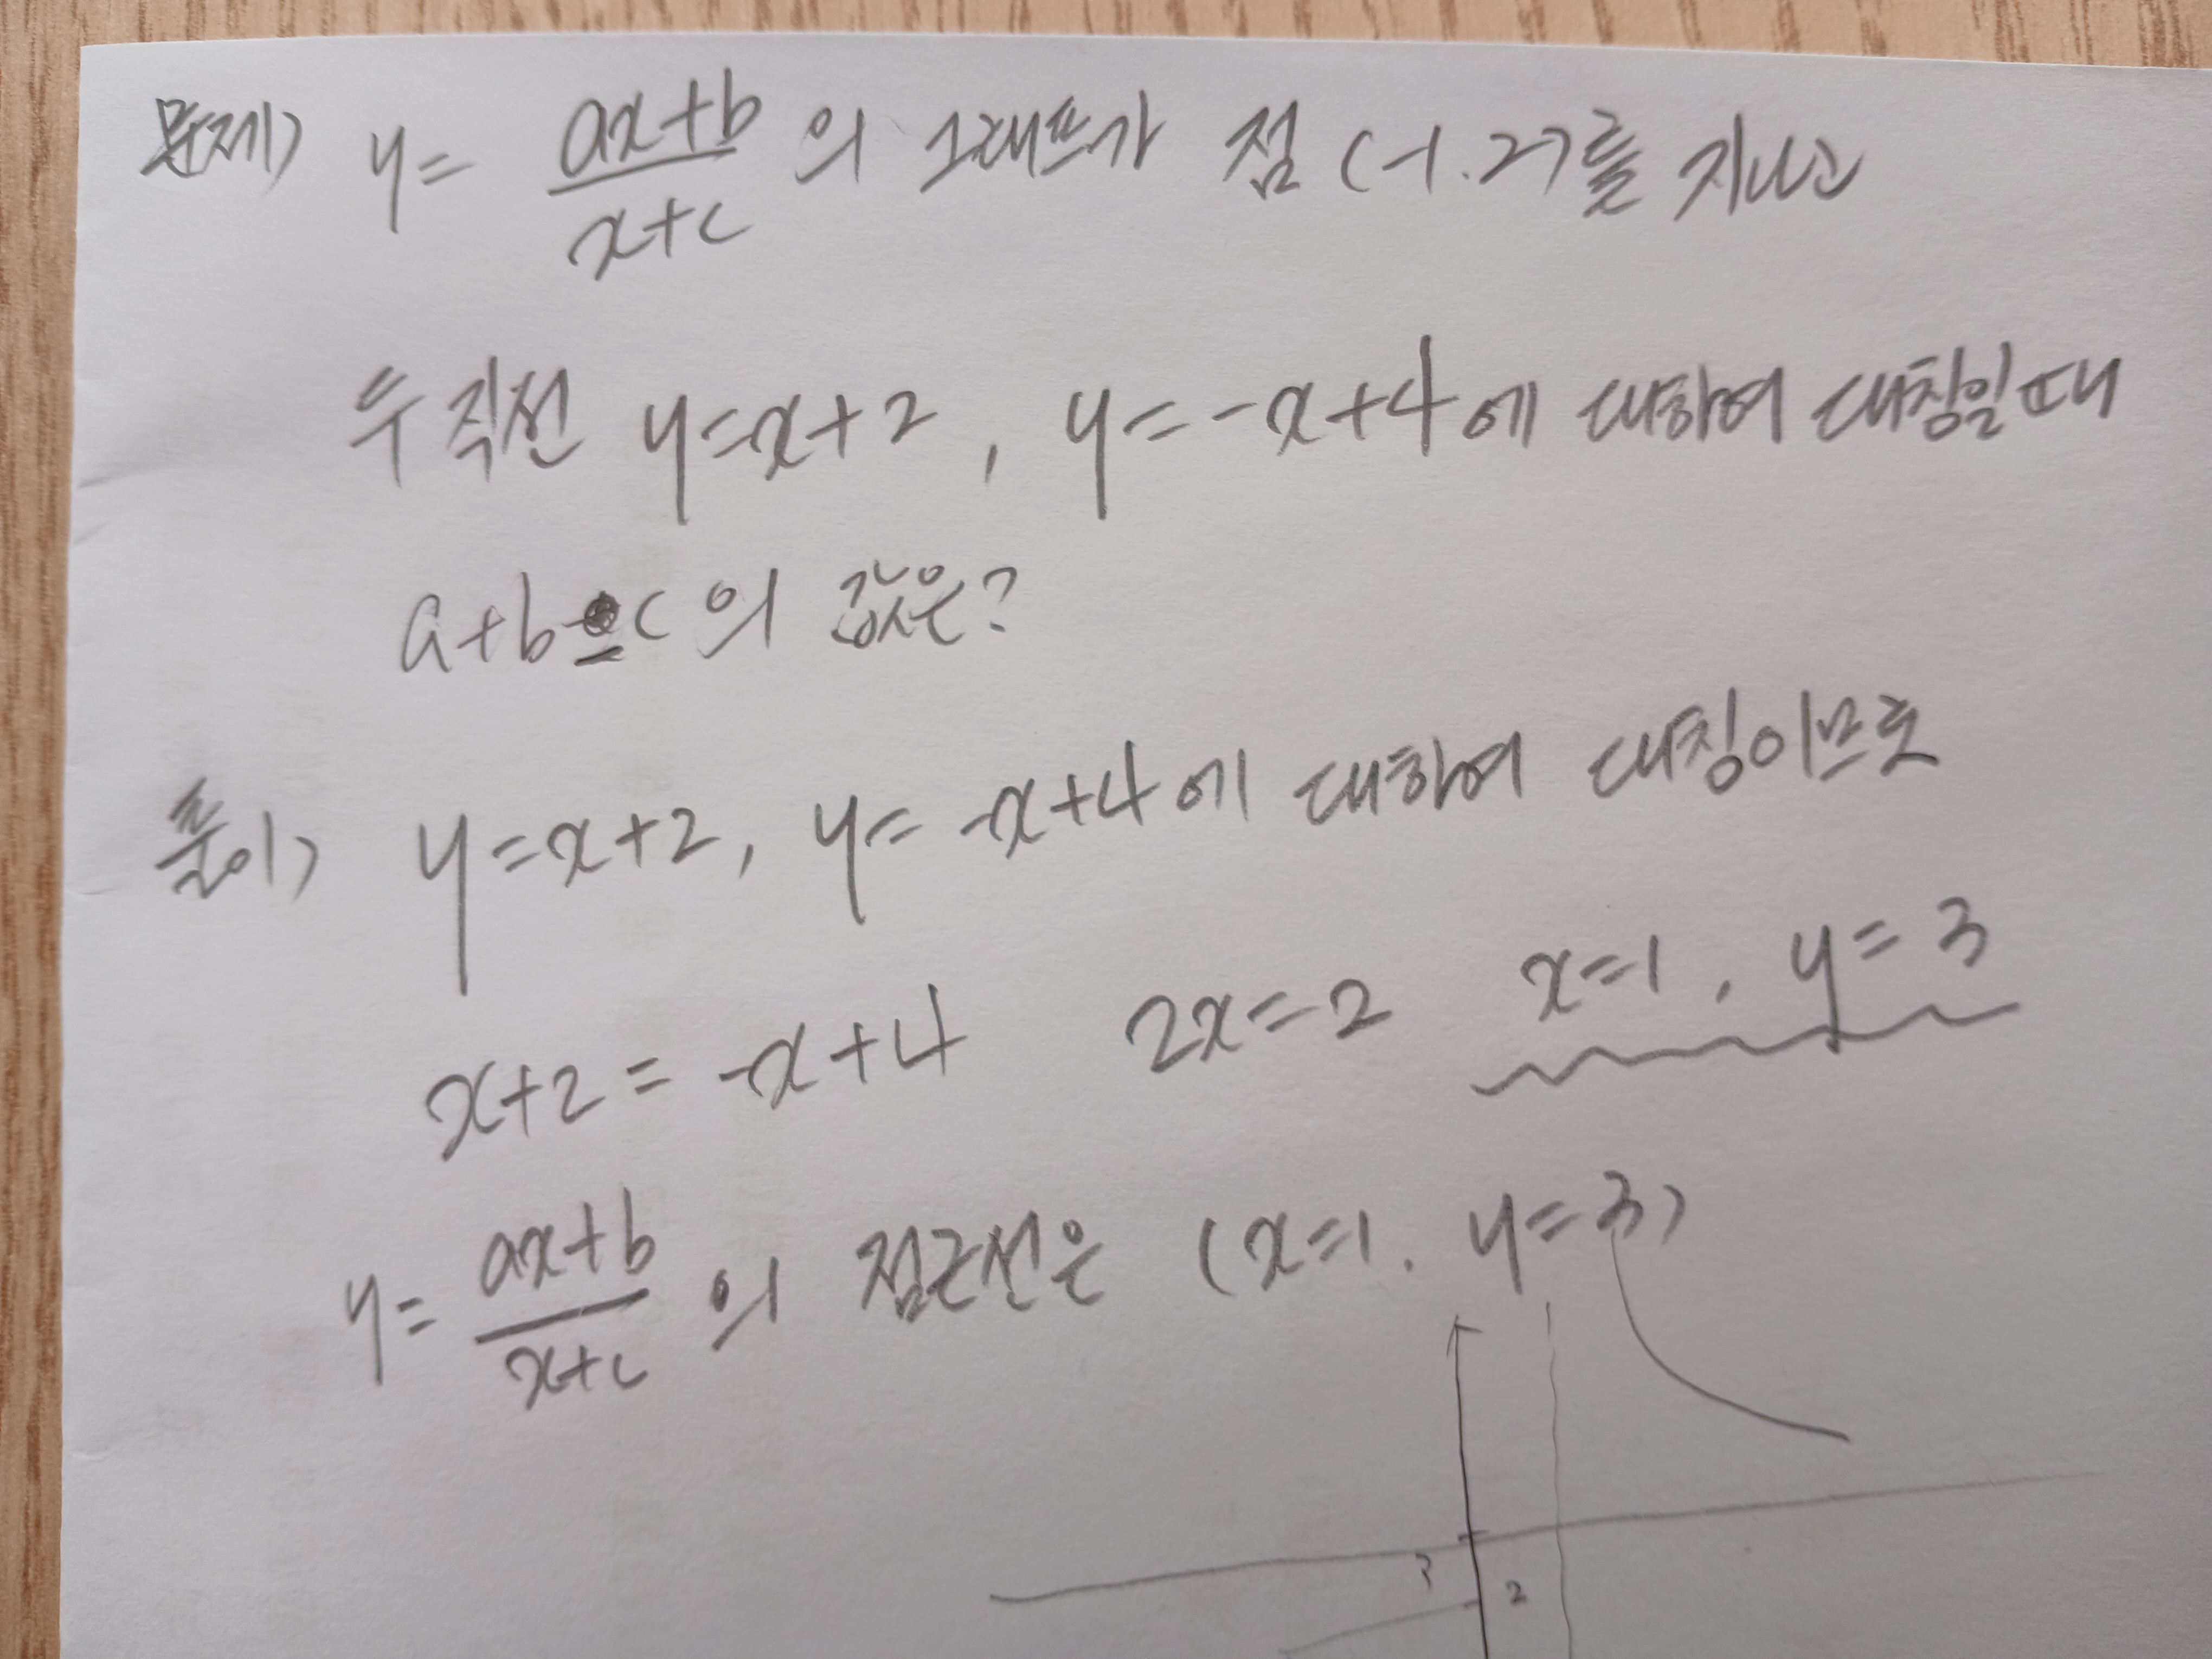 문제) y = ax+b / x+c 의 그래프가 점 (-1.2)를 지나고
두 직선 y=x+2, y=-x+4에 대하여 대칭일때
a+b-c의 값은?
풀이) y=x+2, y=-x+4에 대하여 대칭이므로
x+2=-x+4 2x=2 x=1, y=3
y= ax+b / x+c 의 점근선은 (x=1. y=3)
3 2